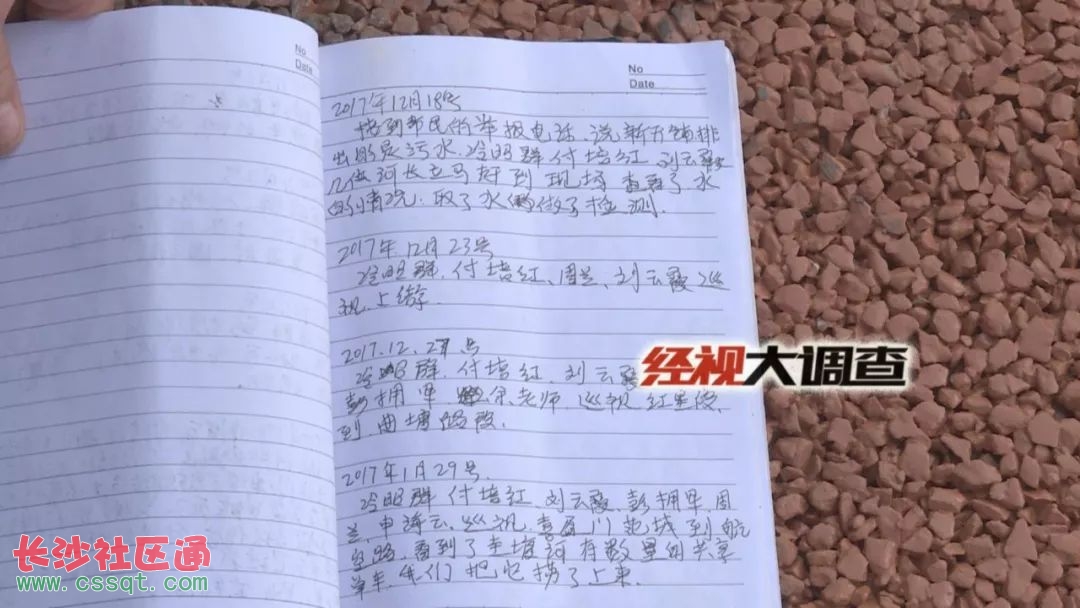 No
Date
No
Date
2017年12月18号
接到市民的举报电话、说新开铺排
出的是污水.冷明群付培红、刘云霞
几位河长立马赶到现场查看了水
的情况.取了水做了检测.
2017年12月23号
冷明群、付培红、周兰、刘云霞巡
视、上综
2017.12.2号
冷明群、付培红、刘云霞
彭拥军 余老师、巡视红星
到曲塘路段.
2017年1月29号.
冷明群付培红、刘云霞、彭拥军、周
兰、申海云、巡视喜门范城到航
空路、看到了圭塘河有数量的共享
单车、我们把它捞了上来.
经视大调查
长沙社区通
www.cssqt.com